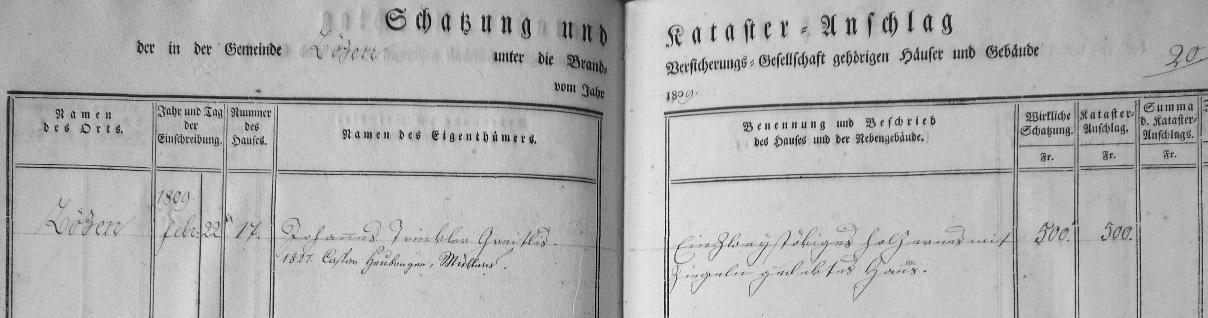 Schatzung und Kataster-Anschlag
der in der Gemeinde Bözen unter die Brand-
Versicherungs-Gesellschaft gehörigen Häuser und Gebäude
vom Jahr 1809.
20
Namen des Orts.
Jahr und Tag der Einschreibung.
Nummer des Hauses.
Namen des Eigenthümers.
Benennung und Beschrieb des Hauses und der Nebengebäude.
Wirkliche Schatzung.
Kataster-Anschlag.
Summa d. Kataster-Anschlags.
Fr.
Fr.
Fr.
1809
Bözen Febr. 22 17. Johannes
Ein zweystökiges holzernes mit 500. 500.
1827. Caspar Heuberger,
Ziegeln gedektes Haus.